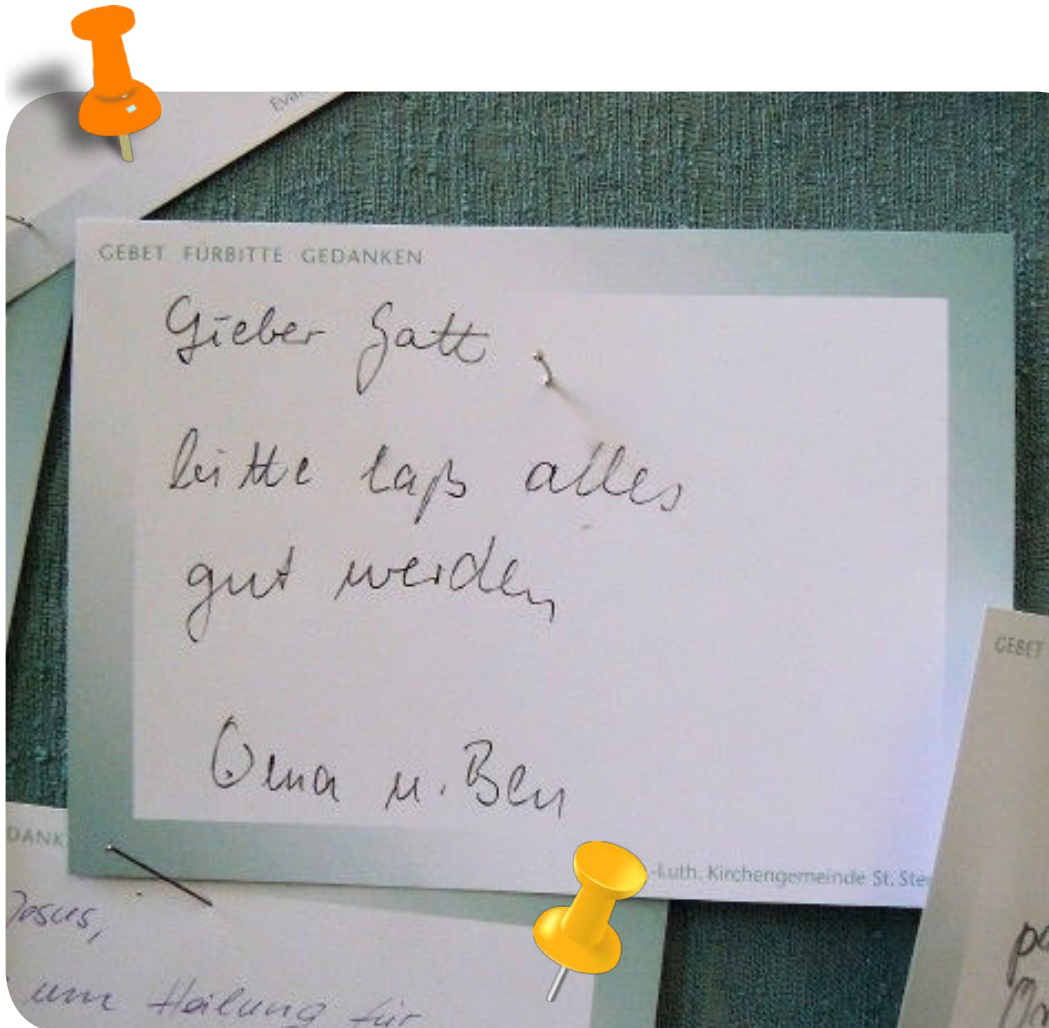 GEBET FÜRBITTE GEDANKEN
Lieber Gott
bitte laß alles
gut werden
Oma u. Ben
-Luth. Kirchengemeinde St. Ste
GEBET
DANK
Jesus,
um Heilung für